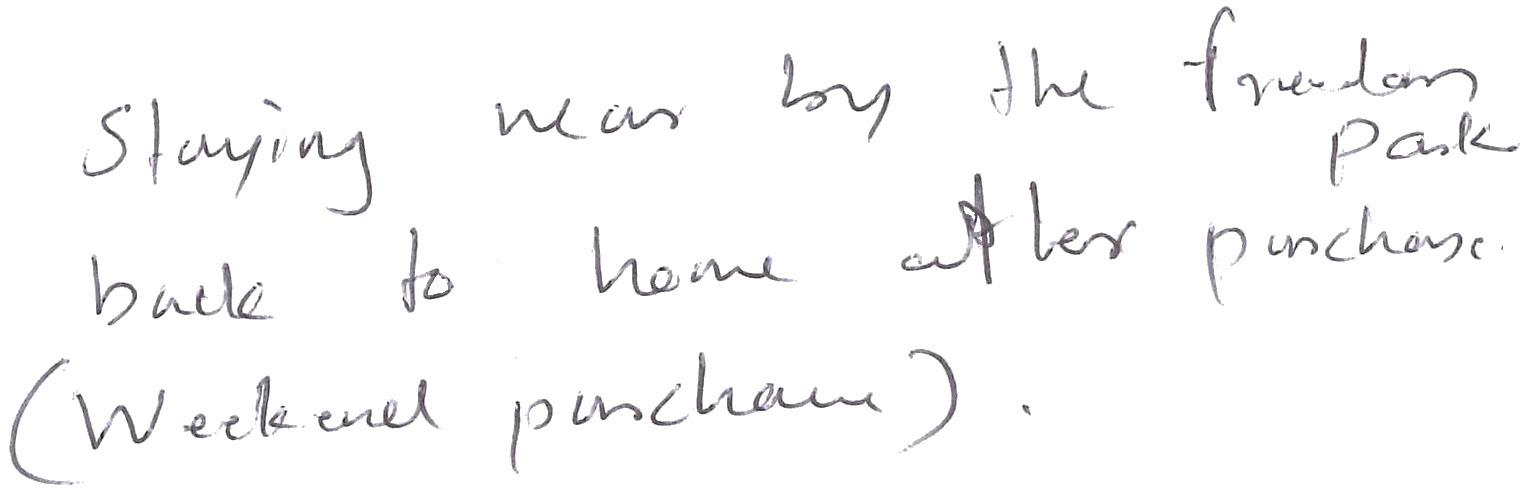 Staying near by the freedom park
back to home after purchase.
(Weekend purchase).